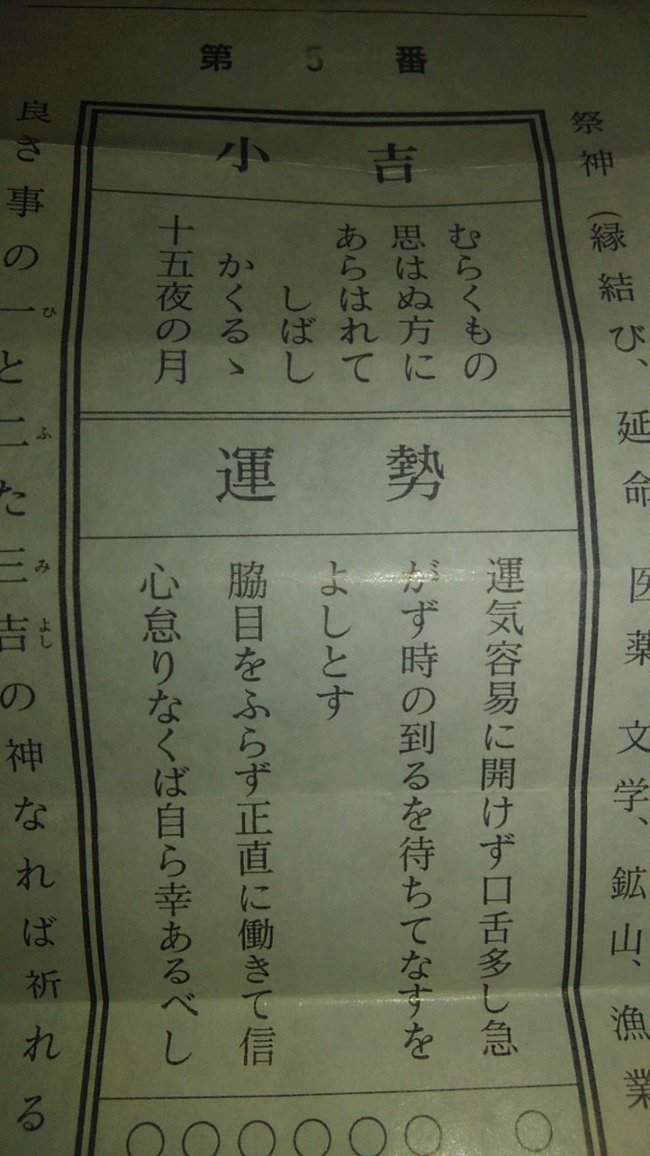 第5番
祭神(縁結び、延命 医薬 文学、鉱山、漁業
小吉
むらくもの
思はぬ方に
あらはれて
しばし
かくるゝ
十五夜の月
運勢
運気容易に開けず口舌多し急
がず時の到るを待ちてなすを
よしとす
脇目をふらず正直に働きて信
心怠りなくば自ら幸あるべし
○ ○○○○○○
良き事の一と二た三吉の神なれば祈れる
ひ ふ み よし